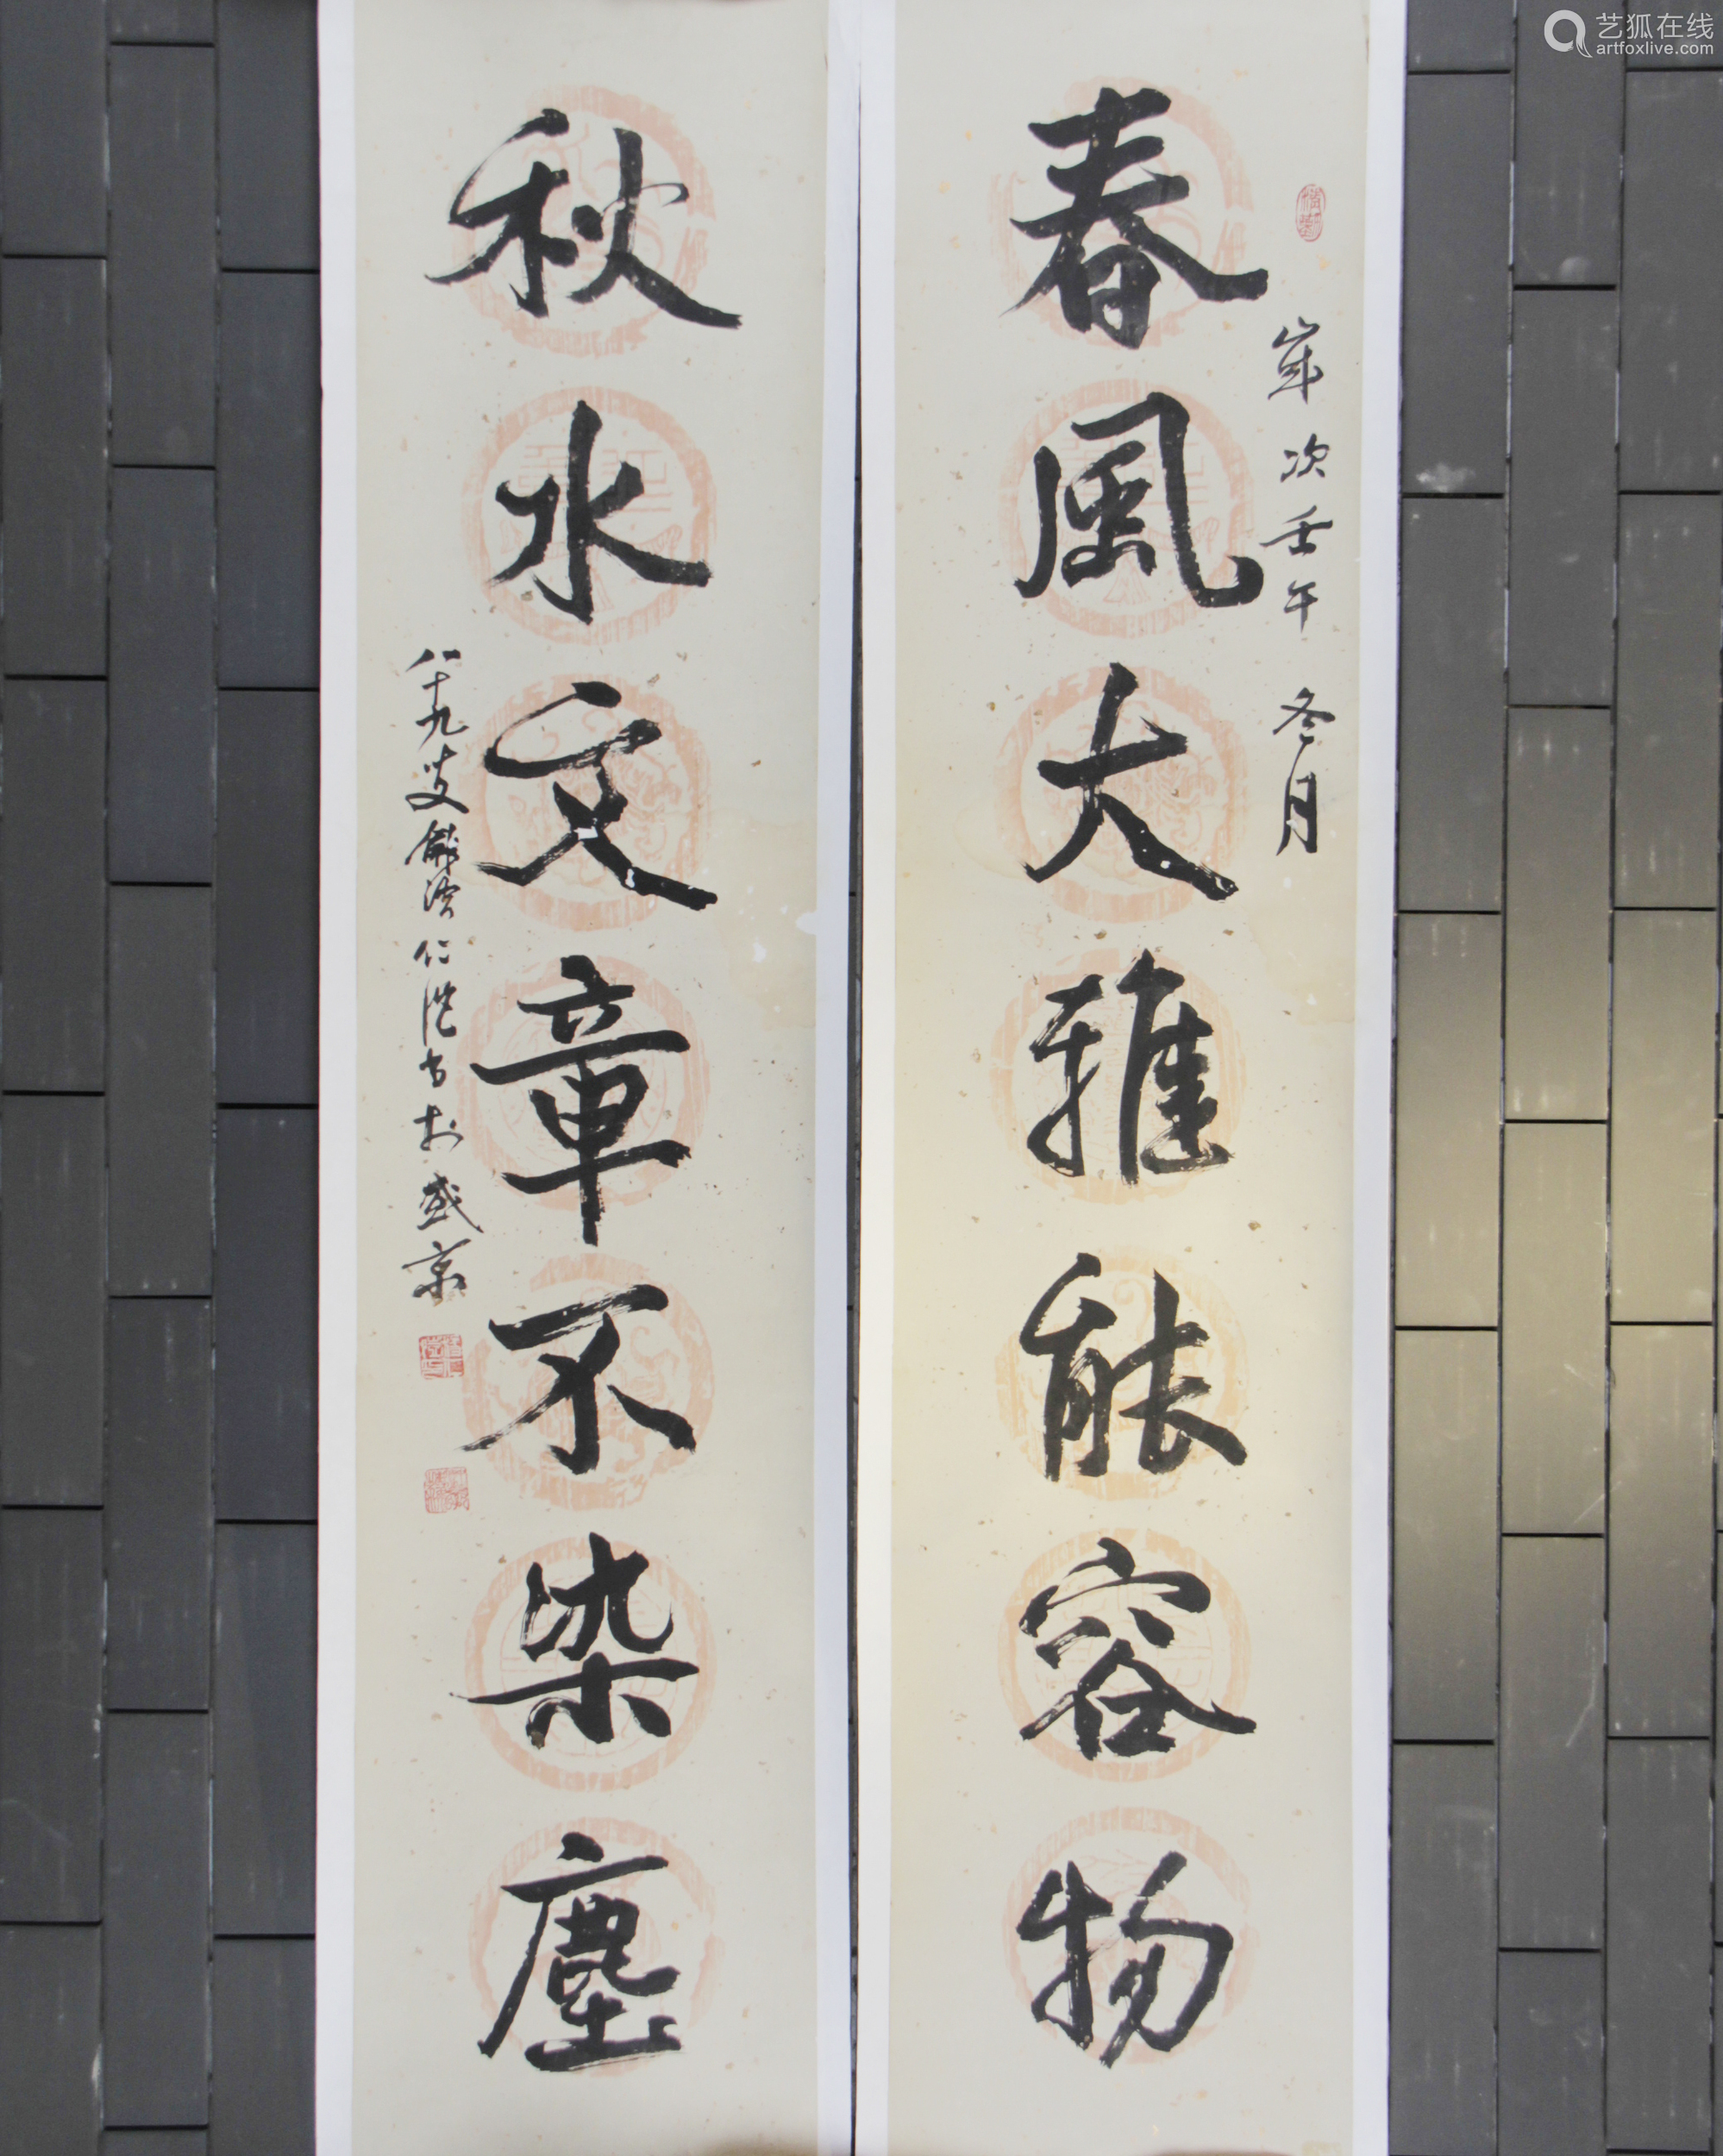 艺狐在线
artfoxlive.com
歲次壬午 冬月
春風大雅能容物
秋水文章不染塵
八十九叟 仁愷書於盛京